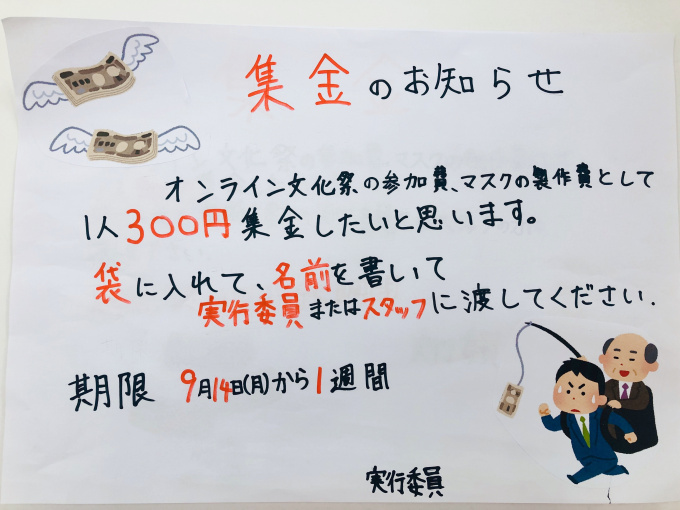 集金のお知らせ
オンライン文化祭の参加費、マスクの製作費として
1人300円集金したいと思います。
袋に入れて、名前を書いて
実行委員またはスタッフに渡してください.
期限 9月14日(月)から1週間
実行委員